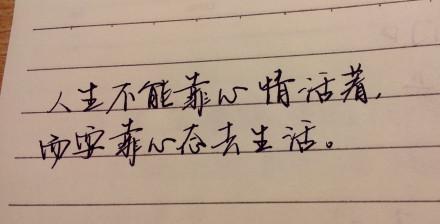 人生不能靠心情活着，
而要靠心态去生活。